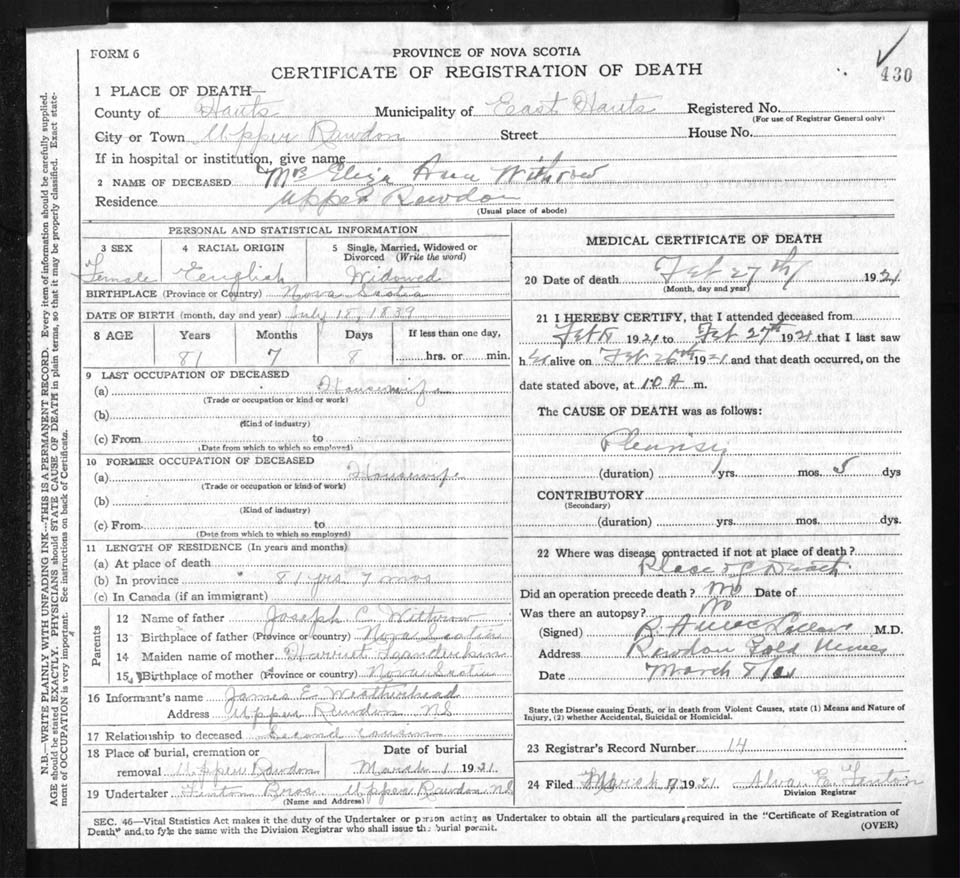 FORM 6
PROVINCE OF NOVA SCOTIA
CERTIFICATE OF REGISTRATION OF DEATH
430
1 PLACE OF DEATH—
County of Hants Municipality of East Hants Registered No.
(For use of Registrar General only)
City or Town Upper Rawdon Street House No.
If in hospital or institution, give name
2 NAME OF DECEASED Mrs Eliza Ann Withrow
Residence Upper Rawdon
(Usual place of abode)
PERSONAL AND STATISTICAL INFORMATION
3 SEX 4 RACIAL ORIGIN 5 Single, Married, Widowed or Divorced (Write the word)
Female English Widowed
BIRTHPLACE (Province or Country) Nova Scotia
DATE OF BIRTH (month, day and year) July 18, 1839
8 AGE Years Months Days If less than one day,
81 7 8 hrs. or min.
9 LAST OCCUPATION OF DECEASED
(a) Housewife
(Trade or occupation or kind or work)
(b)
(Kind of industry)
(c) From to
(Date from which to which so employed)
10 FORMER OCCUPATION OF DECEASED
(a) Housewife
(Trade or occupation or kind of work)
(b)
(Kind of industry)
(c) From to
(Date from which to which so employed)
11 LENGTH OF RESIDENCE (In years and months)
(a) At place of death
(b) In province 81 yrs 7 mos
(c) In Canada (if an immigrant)
Parents
12 Name of father Joseph C Withrow
13 Birthplace of father (Province or country) Nova Scotia
14 Maiden name of mother Harriet
15 Birthplace of mother (Province or country) Nova Scotia
16 Informant's name James E Weatherhead
Address Upper Rawdon NS
17 Relationship to deceased Second Cousin
18 Place of burial, cremation or Date of burial
removal Upper Rawdon March 1 1921
19 Undertaker Fenton Bros Upper Rawdon NS
(Name and Address)
MEDICAL CERTIFICATE OF DEATH
20 Date of death Feb 27th 1921
(Month, day and year)
21 I HEREBY CERTIFY, that I attended deceased from
Feb 1921 to Feb 27th 1921 that I last saw
h er alive on Feb 26th 1921 and that death occurred, on the
date stated above, at 10 A m.
The CAUSE OF DEATH was as follows:
Pleurisy
(duration) yrs. mos. 5 dys
CONTRIBUTORY
(Secondary)
(duration) yrs. mos. dys.
22 Where was disease contracted if not at place of death?
Place of Death
Did an operation precede death? No Date of
Was there an autopsy? No
(Signed) M.D.
Address Rawdon Gold Mines
Date March 8/21
State the Disease causing Death, or in death from Violent Causes, state (1) Means and Nature of
Injury, (2) whether Accidental, Suicidal or Homicidal.
23 Registrar's Record Number 14
24 Filed March 1921. Alva E. Fenton
Division Registrar
SEC. 46—Vital Statistics Act makes it the duty of the Undertaker or person acting as Undertaker to obtain all the particulars required in the "Certificate of Registration of
Death" and to fyle the same with the Division Registrar who shall issue the burial permit.
(OVER)
N.B.—WRITE PLAINLY WITH UNFADING INK—THIS IS A PERMANENT RECORD. Every item of information should be carefully supplied.
AGE should be stated EXACTLY. PHYSICIANS should STATE CAUSE OF DEATH in plain terms, so that it may be properly classified. Exact state-
ment of OCCUPATION is very important. See instructions on back of Certificate.